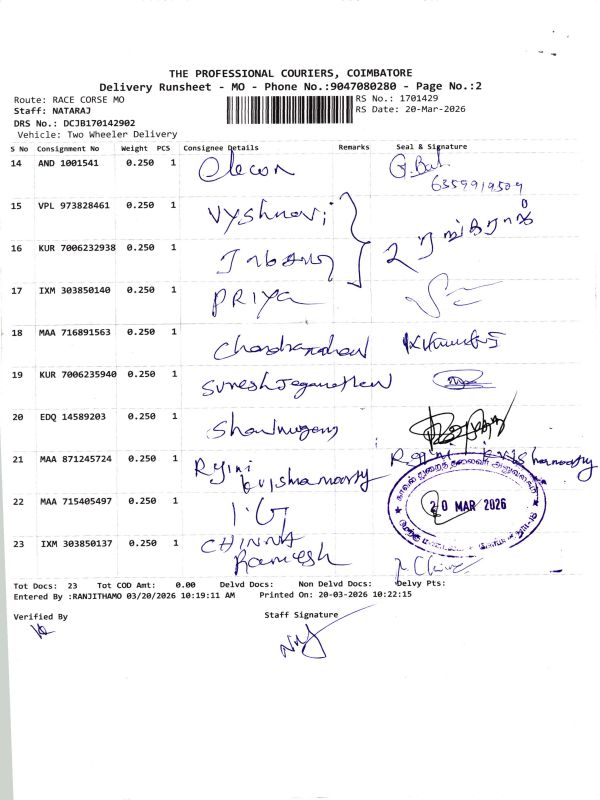 THE PROFESSIONAL COURIERS, COIMBATORE
Delivery Runsheet - MO - Phone No.:9047080280 - Page No.:2
Route: RACE CORSE MO
RS No.: 1701429
Staff: NATARAJ
RS Date: 20-Mar-2026
DRS No.: DCJB170142902
Vehicle: Two Wheeler Delivery
S No Consignment No Weight PCS Consignee Details Remarks Seal & Signature
14 AND 1001541 0.250 1 Elecon G.Bal.
6359919509
15 VPL 973828461 0.250 1 Vyshnavi
16 KUR 7006232938 0.250 1
17 IXM 303850140 0.250 1 PRIYA
18 MAA 716891563 0.250 1 Chandramohan
19 KUR 7006235940 0.250 1 Suresh Jeganathan
20 EDQ 14589203 0.250 1 Shanmugam
21 MAA 871245724 0.250 1 Rgini
22 MAA 715405497 0.250 1 I.G
20 MAR 2026
23 IXM 303850137 0.250 1 CHINNA
Ramesh
Tot Docs: 23 Tot COD Amt: 0.00 Delvd Docs: Non Delvd Docs: Delvy Pts:
Entered By :RANJITHAMO 03/20/2026 10:19:11 AM Printed On: 20-03-2026 10:22:15
Verified By Staff Signature